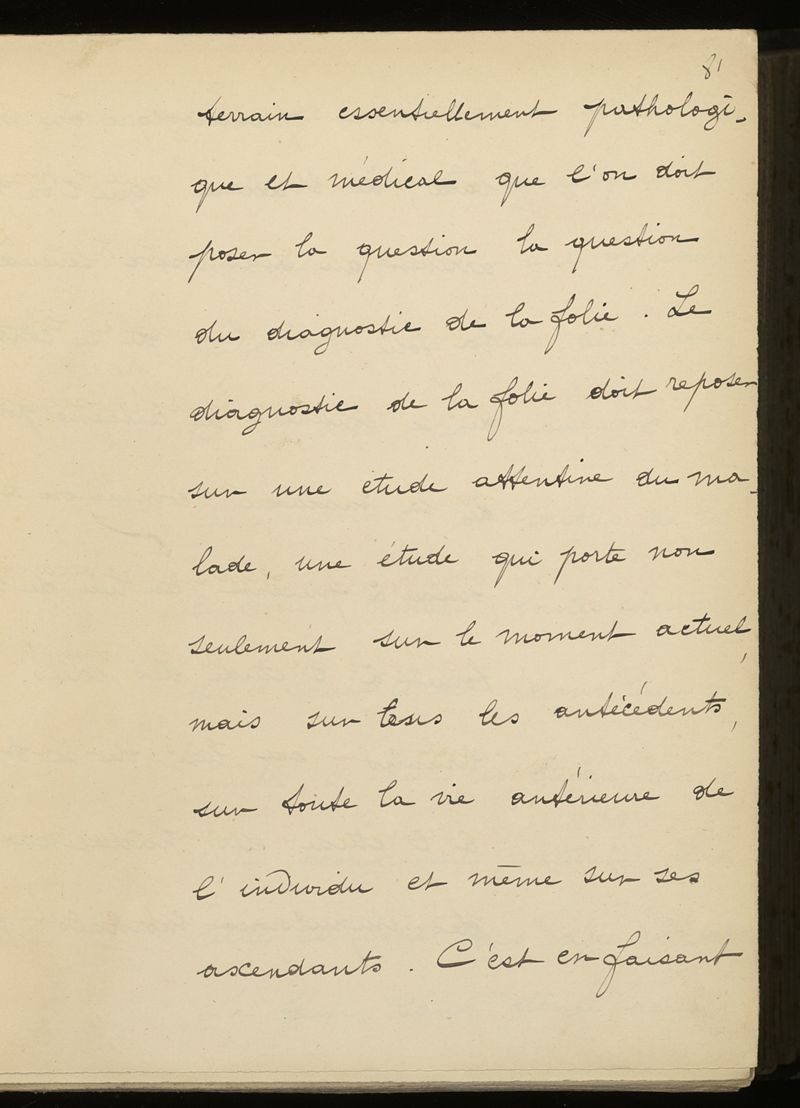 81
terrain essentiellement pathologi-
que et médical que l'on doit
poser la question la question
du diagnostic de la folie. Le
diagnostic de la folie doit reposer
sur une etude attentive du ma-
lade, une étude qui porte non
seulement sur le moment actuel,
mais sur tous les antécédents,
sur toute la vie antérieure de
l'individu et même sur ses
ascendants. C'est en faisant